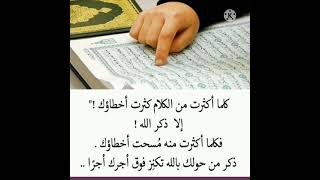 كلما أكثرت من الكلام كثرت أخطاؤك !"
إلا ذكر الله !
فكلما أكثرت منه مُسحت أخطاؤك .
ذكر من حولك بالله تكيَز فوق أجرك أجرًا ..